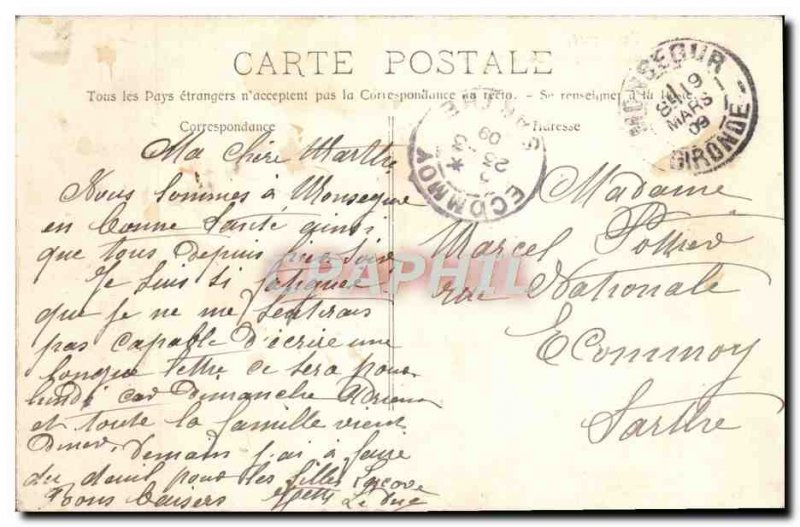 CARTE POSTALE
Tous les Pays étrangers n'acceptent pas la Correspondance au recto. - Se renseigner à la Poste
Correspondance
Adresse
Ma chère Marthe
Nous sommes à Monségur
en bonne santé ainsi
que tous depuis hier soir
Je suis si fatiguée
que je ne me sentirais
pas capable d'écrire une
longue lettre ce sera pour
lundi car Dimanche Adrien
et toute la famille vient
Diner, Demain j'ai à faire
du deuil pour les filles
Bons baisers
Madame
Marcel
rue Nationale
Ecommoy
Sarthe
MONSEGUR
9
MARS
09
GIRONDE
ECOMMOY
SARTHE
09
CPAPHIL